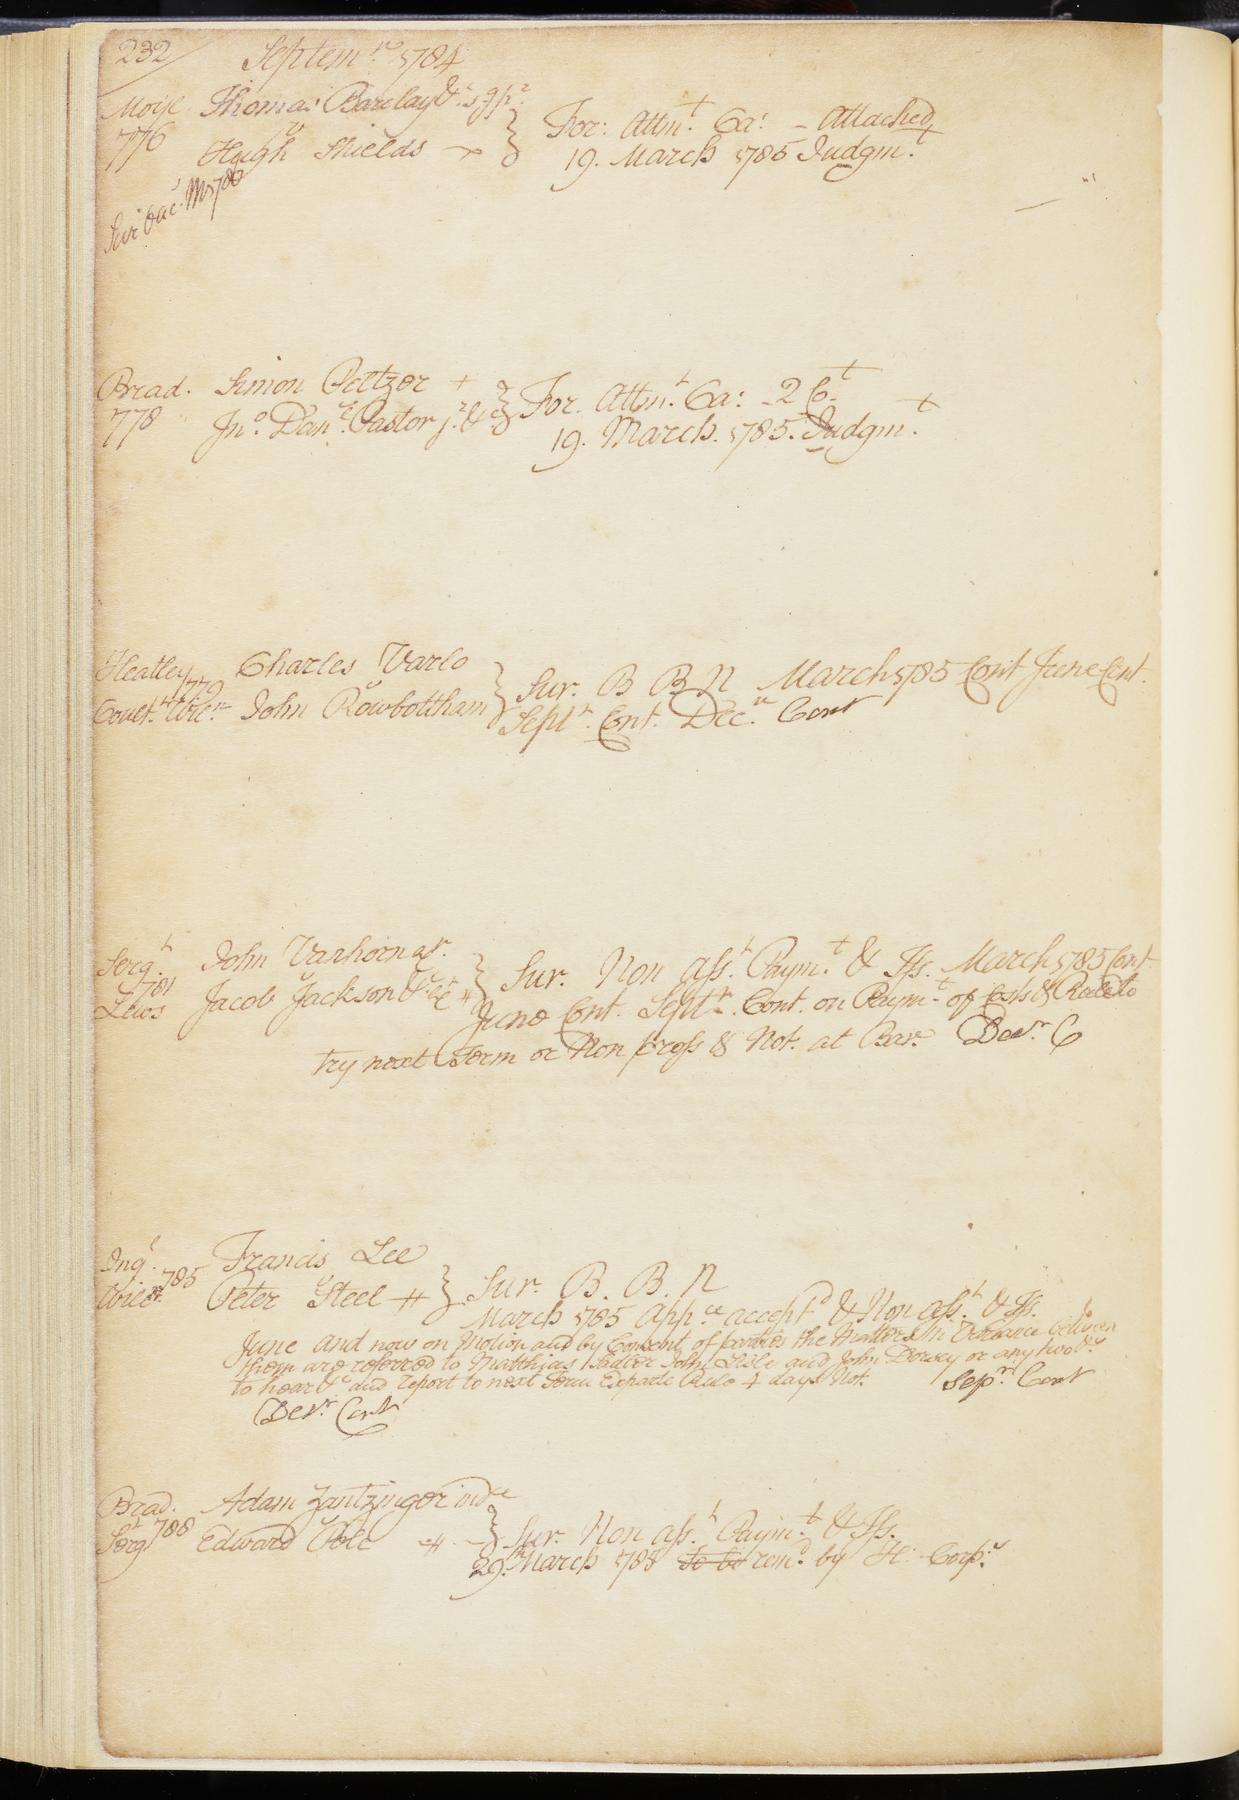 232/ Septem.r 1784
Moyl. Thomas Barclay &c.
776 v
Hugh Shields
For: Attm.t Ca: - Attached
19. March 1785 Judgm.t
Brad. Simon Peltzer +
778 Jno. Danl. Pastor jr. &c
For. Attm.t Ca: - 2 C.
19. March. 1785. Judgm.t
Heatley 779 Charles Varlo
v
Coult.t Wic.r John Rowbottham
Sur. B B N March 1785 Cont June Cont.
Sept.r Cont. Dec.r Cont
Serg.t John Vanhorn
781 v
Lewis Jacob Jackson
Sur. Non Ass.t Paym.t & Iss. March 1785 Cont.
June Cont. Sept.r Cont. on Paym.t of Costs & Rule to
try next Term or Non pross & Not. at Bar. Decr. C
Ing.l Francis Lee
785 v
Wilc. Peter Steel #
Sur. B. B. N
March 1785 App.ce accept.d & Non ass.t & Iss.
June And now on Motion and by Consent of parties the Matters in Variance between
them are referred to Matthias Sadler John Lisle and John Dorsey or any two &c
to hear &c and report to next Term Exparte Rule 4 days Not. Sepr. Cont
Decr. Cont
Brad. Adam Zantzinger ind.ce
788 v
Serg.t Edward Pole #
Sur. Non ass.t Paym.t & Iss.
29.th March 1785 To be rem.d by H: Corp.s